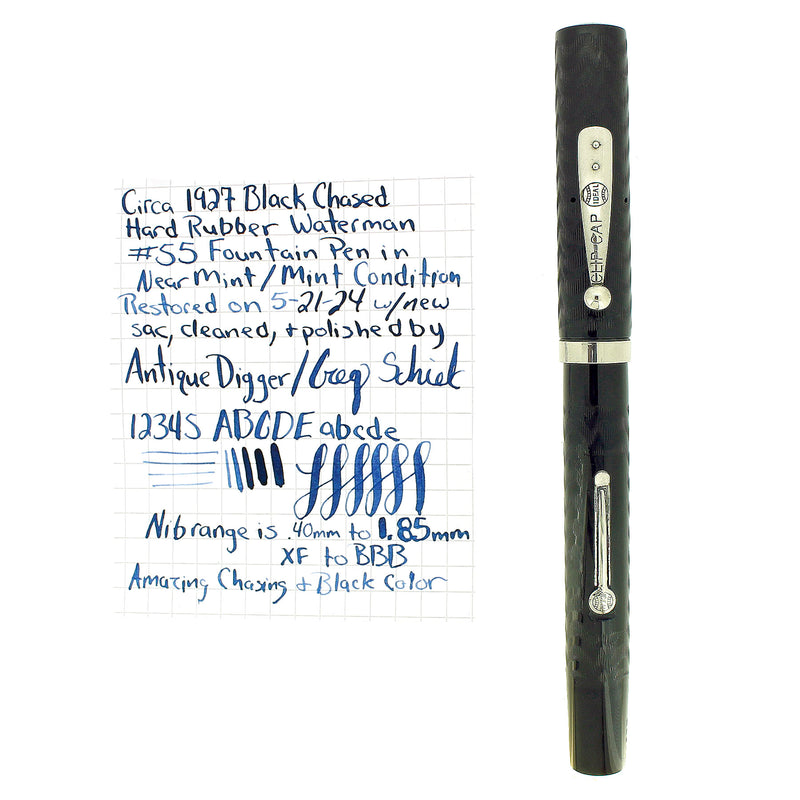 Circa 1927 Black Chased
Hard Rubber Waterman
#55 Fountain Pen in
Near Mint/Mint Condition
Restored on 5-21-24 w/new
sac, cleaned, + polished by
Antique Digger/Greg Schiek
12345 ABCDE abcde
Nib range is .40mm to 1.85mm
XF to BBB
Amazing Chasing + Black Color
IDEAL
CLIP-CAP